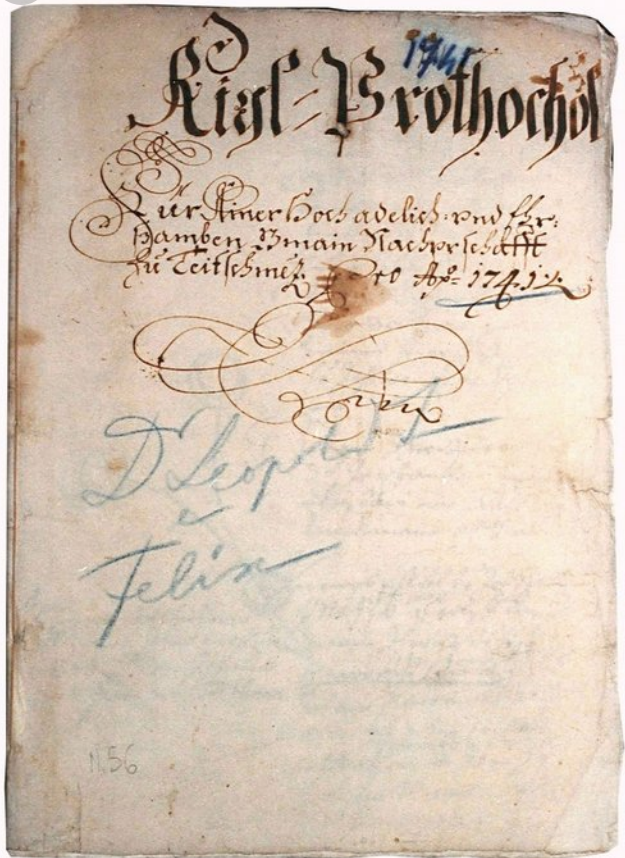 1741
Rigl= Prothochol
Für Ainer Hoch adelich= vnd Ehr=
samben Gmain Nachperschafft
zu Teitschmez. pro Aõ= 1741
D Leopold
e
Felix
N. 56